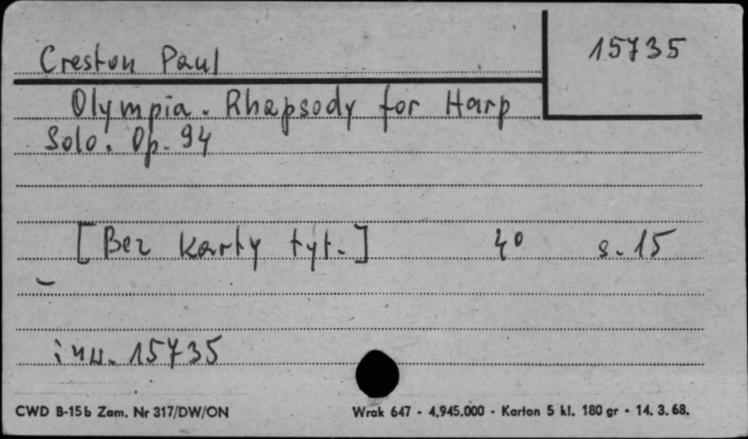 15735
Creston Paul
Olympia. Rhapsody for Harp
Solo. Op. 94
[Bez karty tyt.] 4° s. 15
inw. 15735
CWD B-15b Zam. Nr 317/DW/ON Wrak 647 - 4.945.000 - Karton 5 kl. 180 gr - 14. 3. 68.